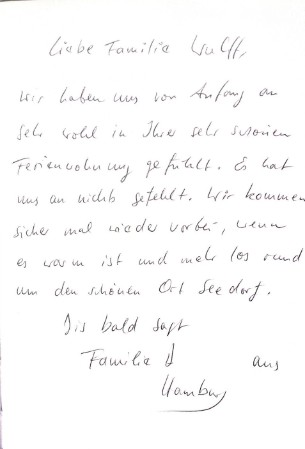 Liebe Familie Wulff,
wir haben uns von Anfang an
sehr wohl in Ihrer sehr schönen
Ferienwohnung gefühlt. Es hat
uns an nichts gefehlt. Wir kommen
sicher mal wieder vorbei, wenn
es warm ist und mehr los rund
um den schönen Ort Seedorf.
Bis bald sagt
Familie aus
Hamburg